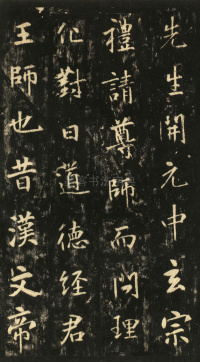 先生開元中玄宗
禮請尊師而問理
化對曰道德經君
王師也昔漢文帝